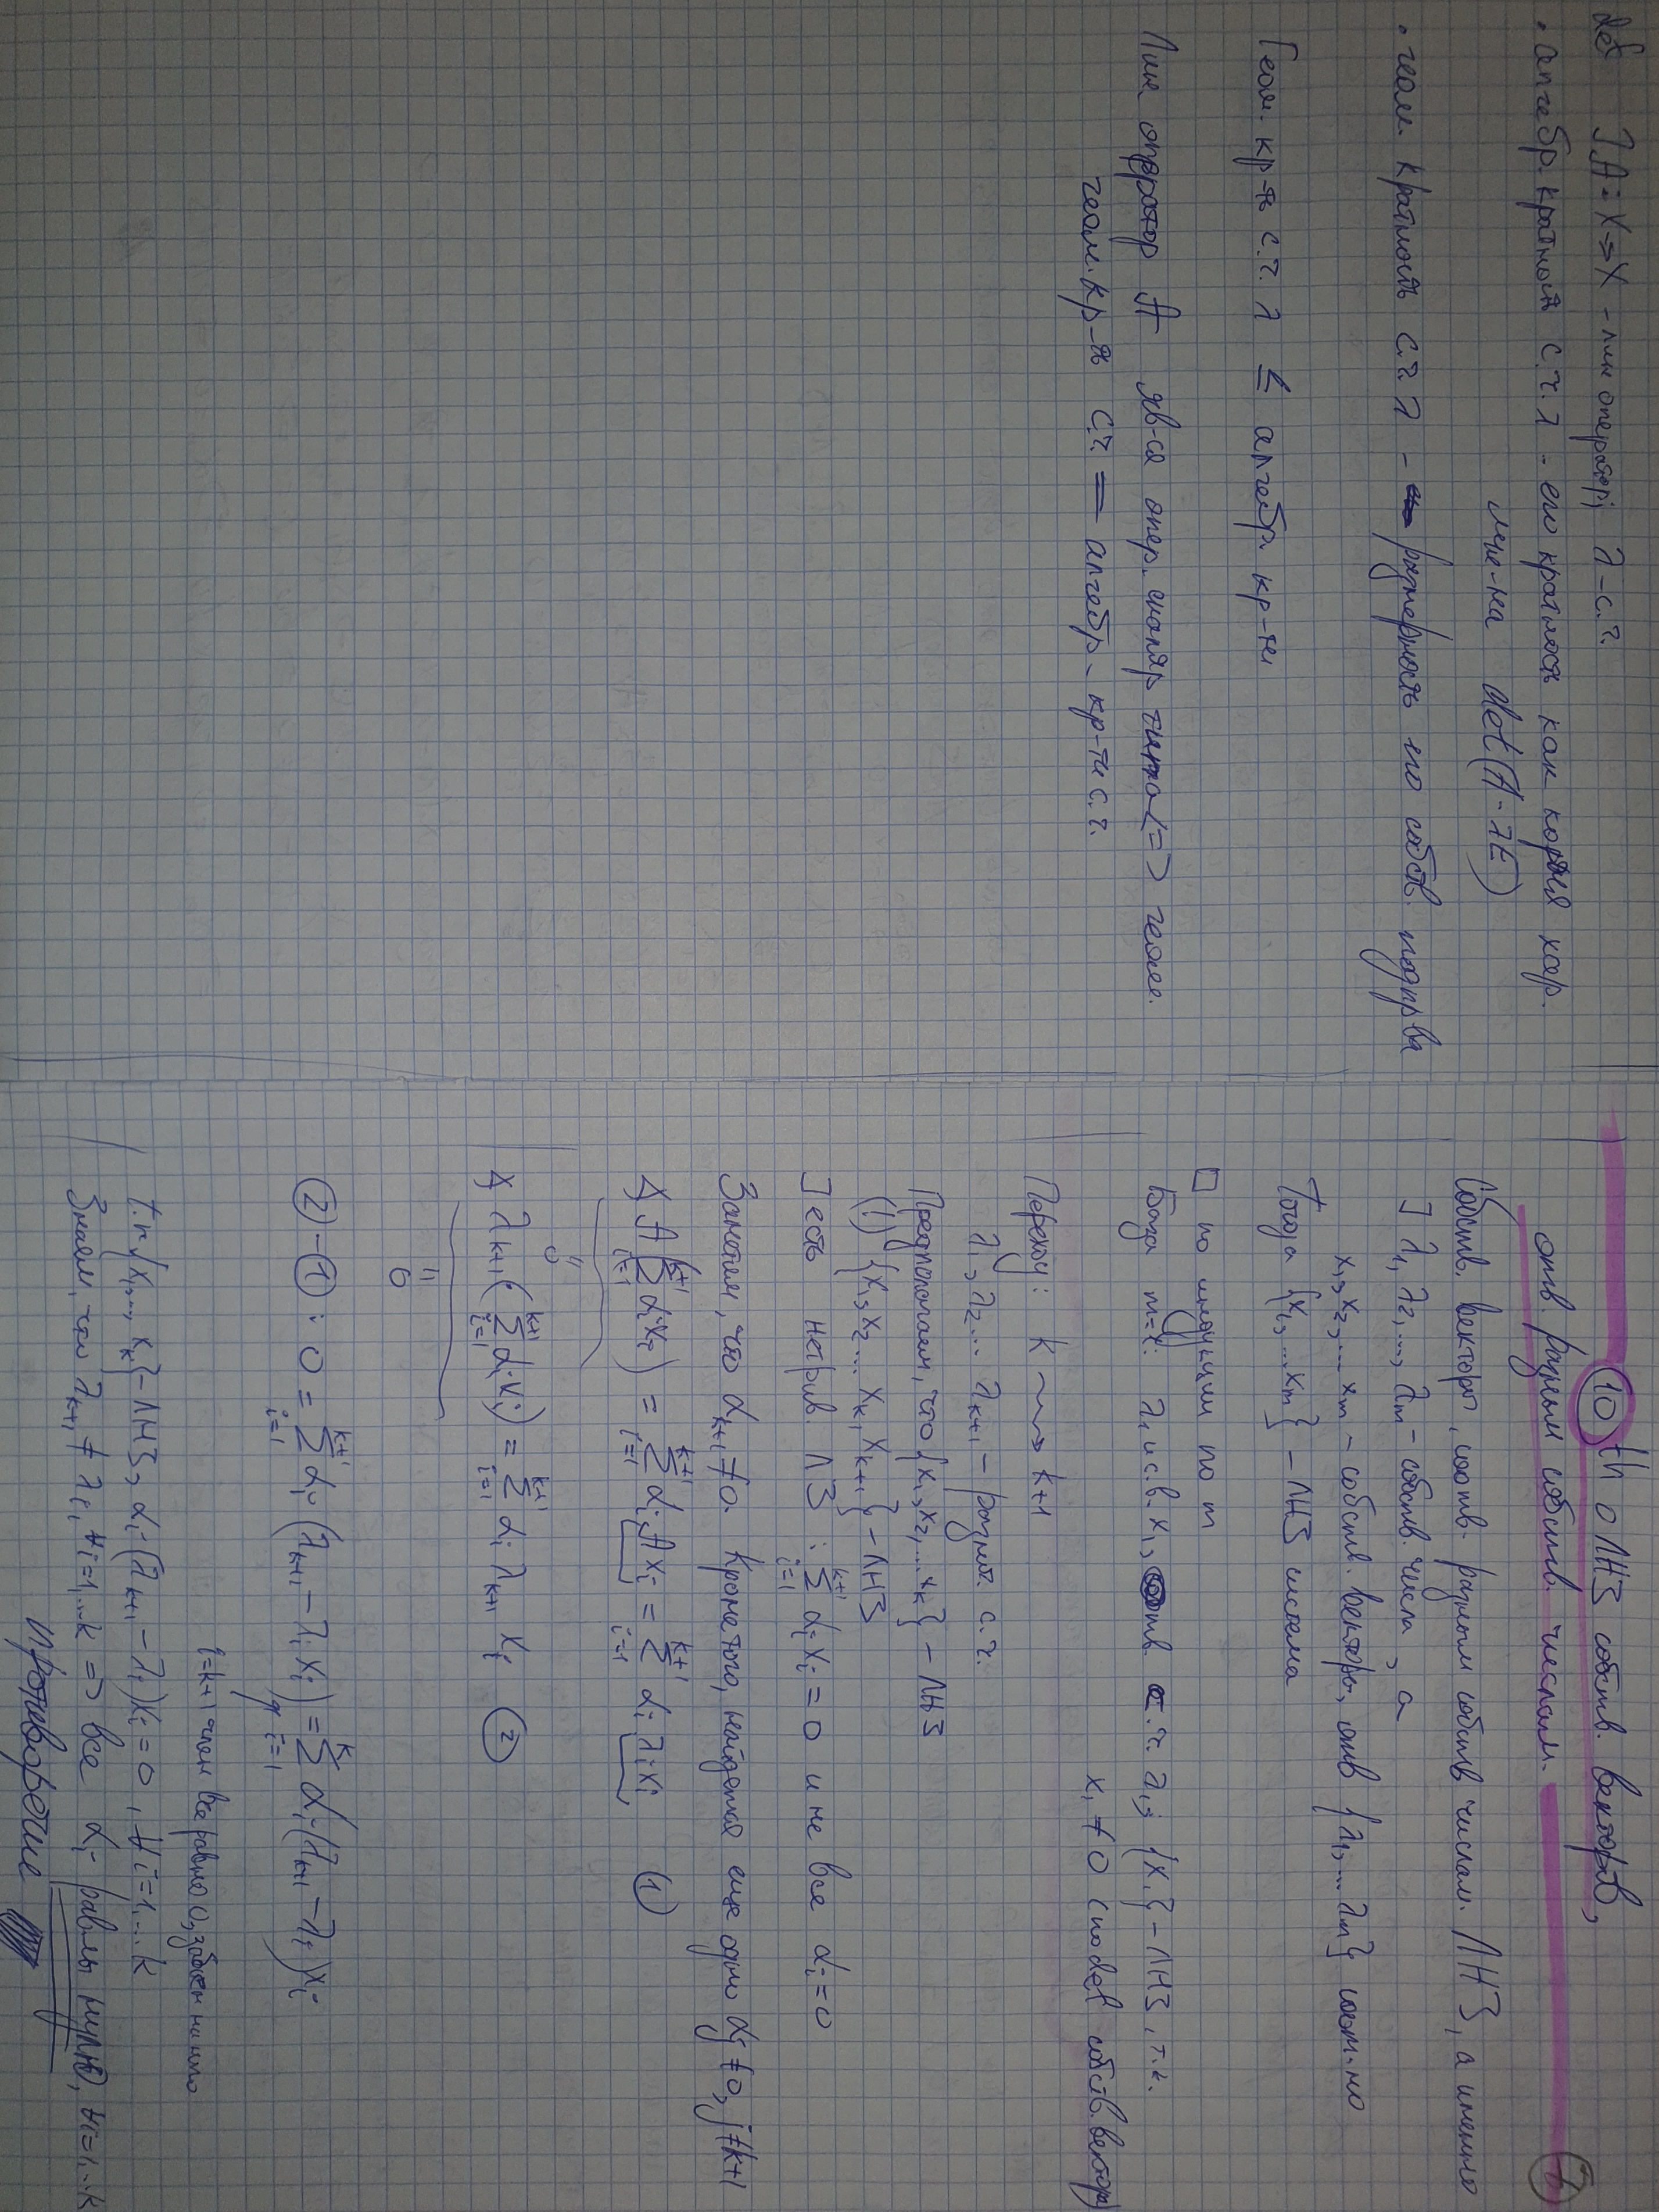 def ] A: X → X - лин оператор; λ - с.ч.
· алгебр. кратность с.ч. λ - его кратность как корня хар.
мнг-на det(A - λE)
· геом. кратность с.ч. λ - размерность его собств. подпр-ва
Геом. кр-ть с.ч. λ ≤ алгебр. кр-ти
Лин оператор A яв-ся опер. скаляр типа <=> геом.
геом. кр-ть с.ч = алгебр. кр-ти с.ч.
⑩ th о ЛНЗ собств. векторов,
отв. разным собств. числам.
Собств. вектора, соотв. разным собств числам. ЛНЗ, а именно
] λ₁, λ₂, ..., λₘ - собств. числа, а
x₁, x₂, ... xₘ - собств. векторы, отв {λ₁, ... λₘ} соот-но
Тогда {x₁, ... xₘ} - ЛНЗ система
□ по индукции по m
База m=1: λ₁ и с.в. x₁, отв. с.ч. λ₁; {x₁} - ЛНЗ, т.к.
x₁ ≠ 0 (по def собств. вектора)
Переход: k ⇝ k+1
λ₁, λ₂ ... λₖ₊₁ - различ. с.ч.
Предполагаем, что {x₁, x₂, ... xₖ} - ЛНЗ
(!) {x₁, x₂ ... xₖ, xₖ₊₁} - ЛНЗ
] есть нетрив. ЛЗ : ∑ᵢ₌₁ᵏ⁺¹ αᵢxᵢ = 0 и не все αᵢ = 0
Заметим, что αₖ₊₁ ≠ 0. Кроме того, найдется еще один αⱼ ≠ 0, j ≠ k+1
∢ A(∑ᵢ₌₁ᵏ⁺¹ αᵢxᵢ) = ∑ᵢ₌₁ᵏ⁺¹ αᵢ Axᵢ = ∑ᵢ₌₁ᵏ⁺¹ αᵢ λᵢxᵢ ①
"
0
∢ λₖ₊₁(∑ᵢ₌₁ᵏ⁺¹ αᵢxᵢ) = ∑ᵢ₌₁ᵏ⁺¹ αᵢ λₖ₊₁ xᵢ ②
"
0
② - ① : 0 = ∑ᵢ₌₁ᵏ⁺¹ αᵢ (λₖ₊₁ - λᵢ xᵢ) = ∑ᵢ₌₁ᵏ αᵢ (λₖ₊₁ - λᵢ) xᵢ
i=k+1 член все равно 0, забьем на него
т.к {x₁, ..., xₖ} - ЛНЗ, αᵢ (λₖ₊₁ - λᵢ) xᵢ = 0, ∀i = 1, ... k
Знаем, что λₖ₊₁ ≠ λᵢ, ∀i = 1, ... k => все αᵢ равны нулю, ∀i = 1, ... k
противоречие